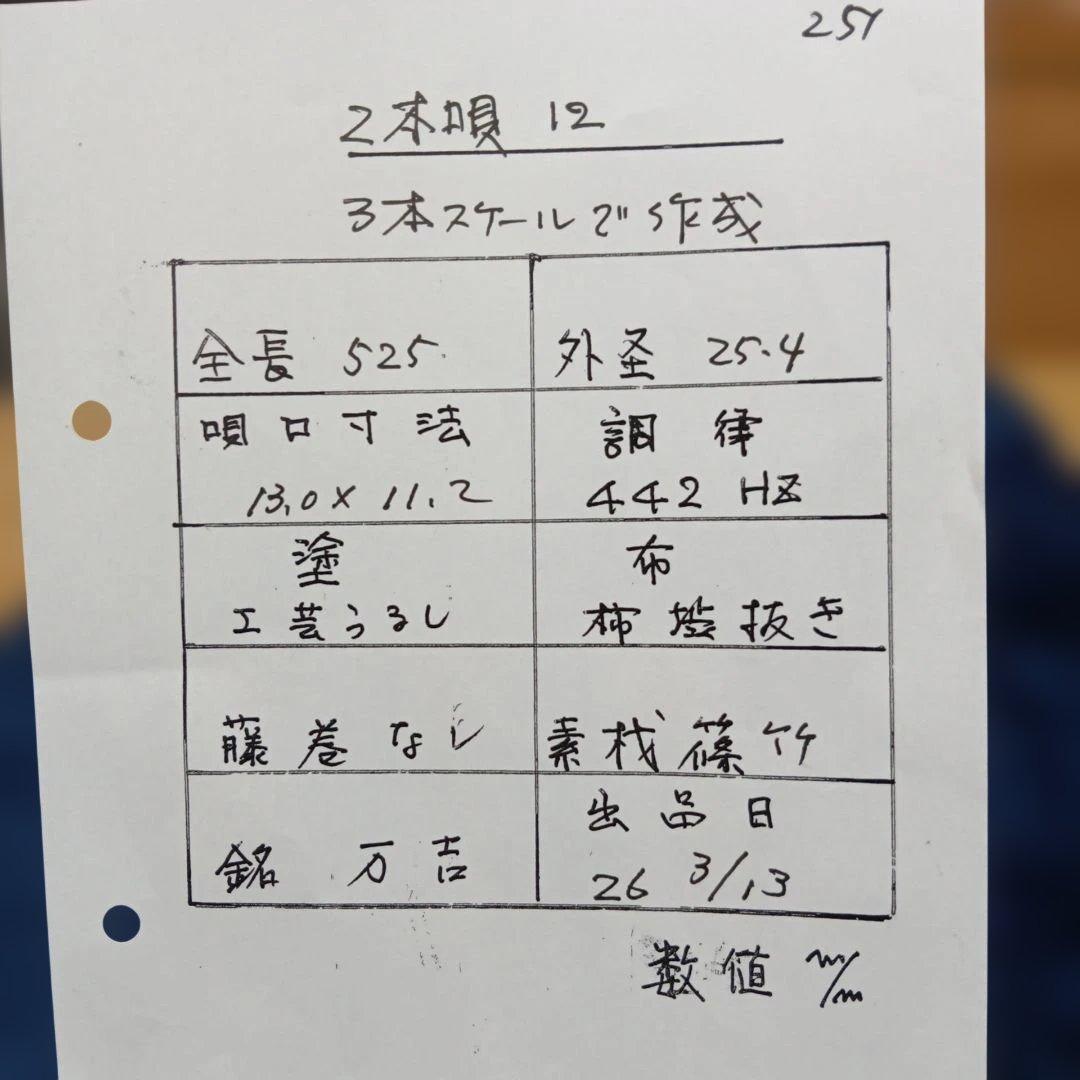 251
2本唄 12
3本スケールで作成
全長 525
外径 25.4
唄口寸法
13.0×11.2
調律
442 HZ
塗
工芸うるし
布
柿渋抜き
藤巻なし
素材篠竹
銘 万吉
出品日
26 3/13
数値 m/m